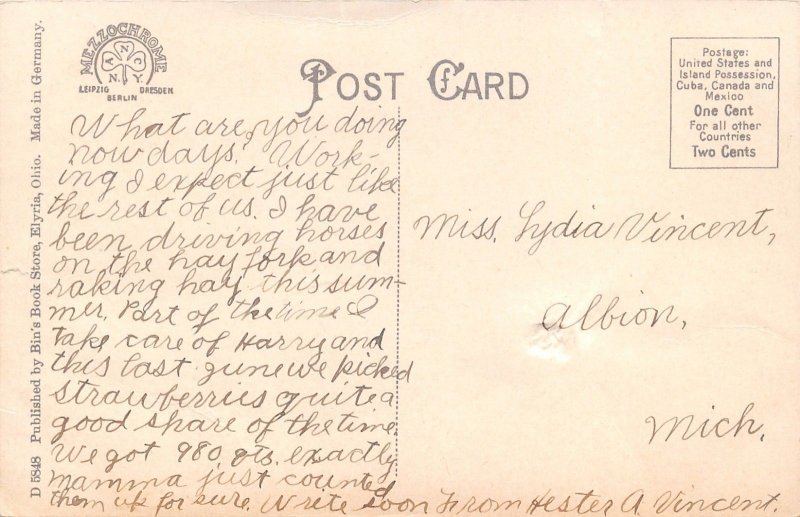 MEZZOCHROME
A N C
N. Y.
LEIPZIG DRESDEN
BERLIN
POST CARD
Postage:
United States and
Island Possession,
Cuba, Canada and
Mexico
One Cent
For all other
Countries
Two Cents
D 5848 Published by Bin's Book Store, Elyria, Ohio. Made in Germany.
What are you doing
now days? Work-
ing I expect just like
the rest of us. I have
been driving horses
on the hay fork and
raking hay this sum-
mer. Part of the time I
take care of Harry and
this last June we picked
strawberries quite a
good share of the time.
We got 980 qts. exactly
mamma just counted
them up for sure. Write soon From Hester A Vincent.
Miss. Lydia Vincent,
Albion,
Mich.